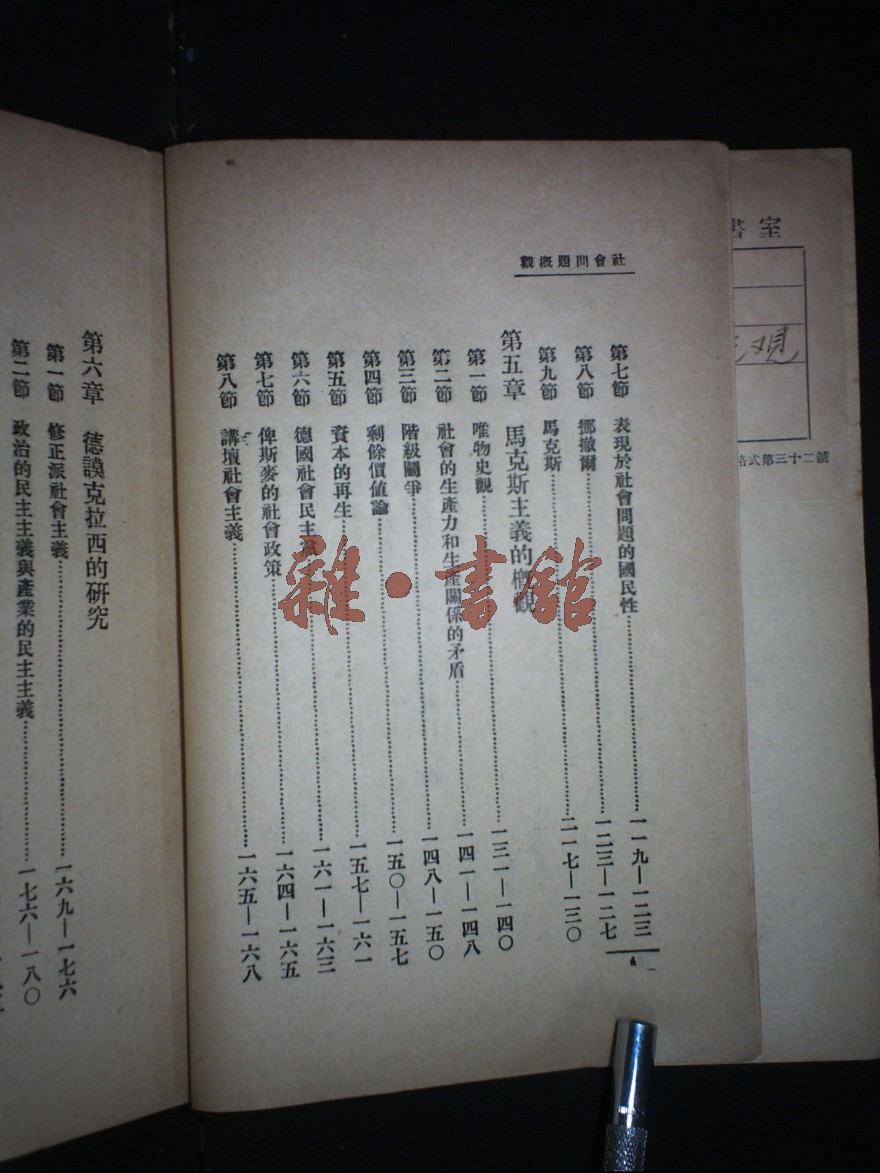 社會問題概觀
第七節 表現於社會問題的國民性……一一九—一二三
第八節 挪撤爾……一二三—一二七
第九節 馬克斯……二一七—一三〇
第五章 馬克斯主義的概觀
第一節 唯物史觀……一三一—一四〇
第二節 社會的生產力和生產關係的矛盾……一四一—一四八
第三節 階級鬭爭……一四八—一五〇
第四節 剩餘價值論……一五〇—一五七
第五節 資本的再生……一五七—一六一
第六節 德國社會民主黨……一六一—一六三
第七節 俾斯麥的社會政策……一六四—一六五
第八節 講壇社會主義……一六五—一六八
第六章 德謨克拉西的研究
第一節 修正派社會主義……一六九—一七六
第二節 政治的民主主義與產業的民主主義……一七六—一八〇
雜·書館
書室
观
格式第三十二號